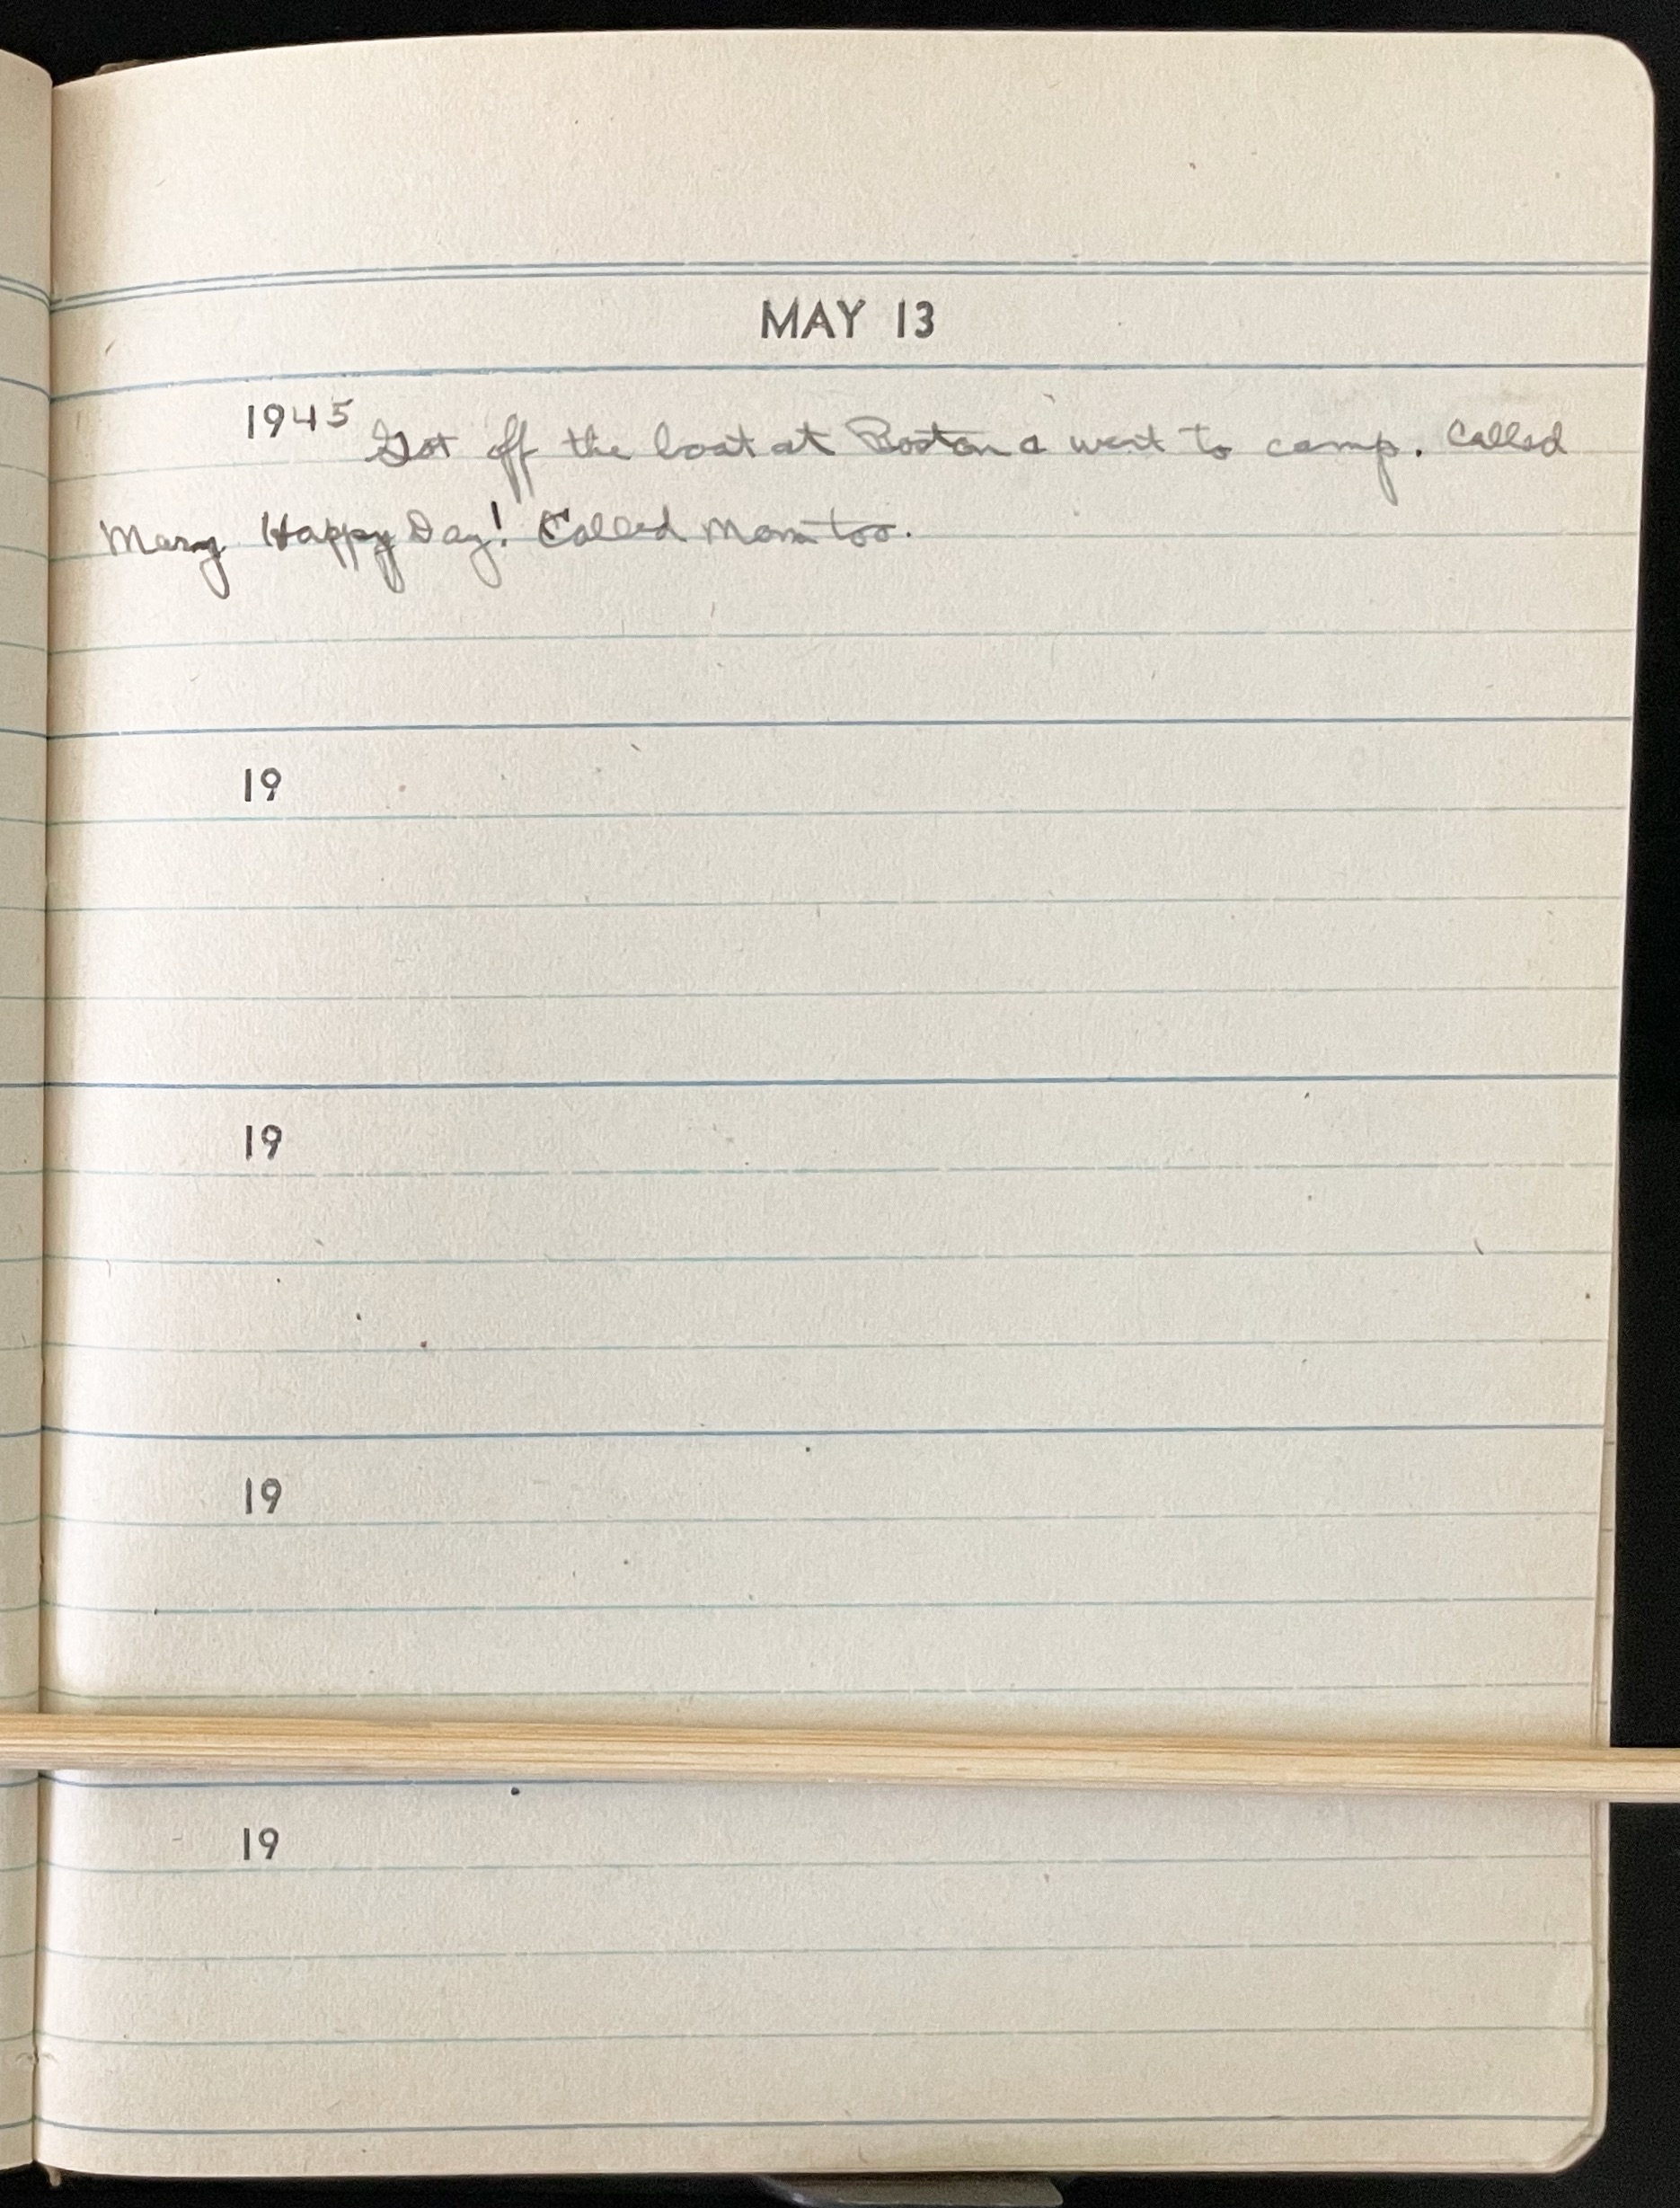 MAY 13
1945 Got off the boat at Boston & went to camp. Called
Mary Happy Day! Called Mom too.
19
19
19
19